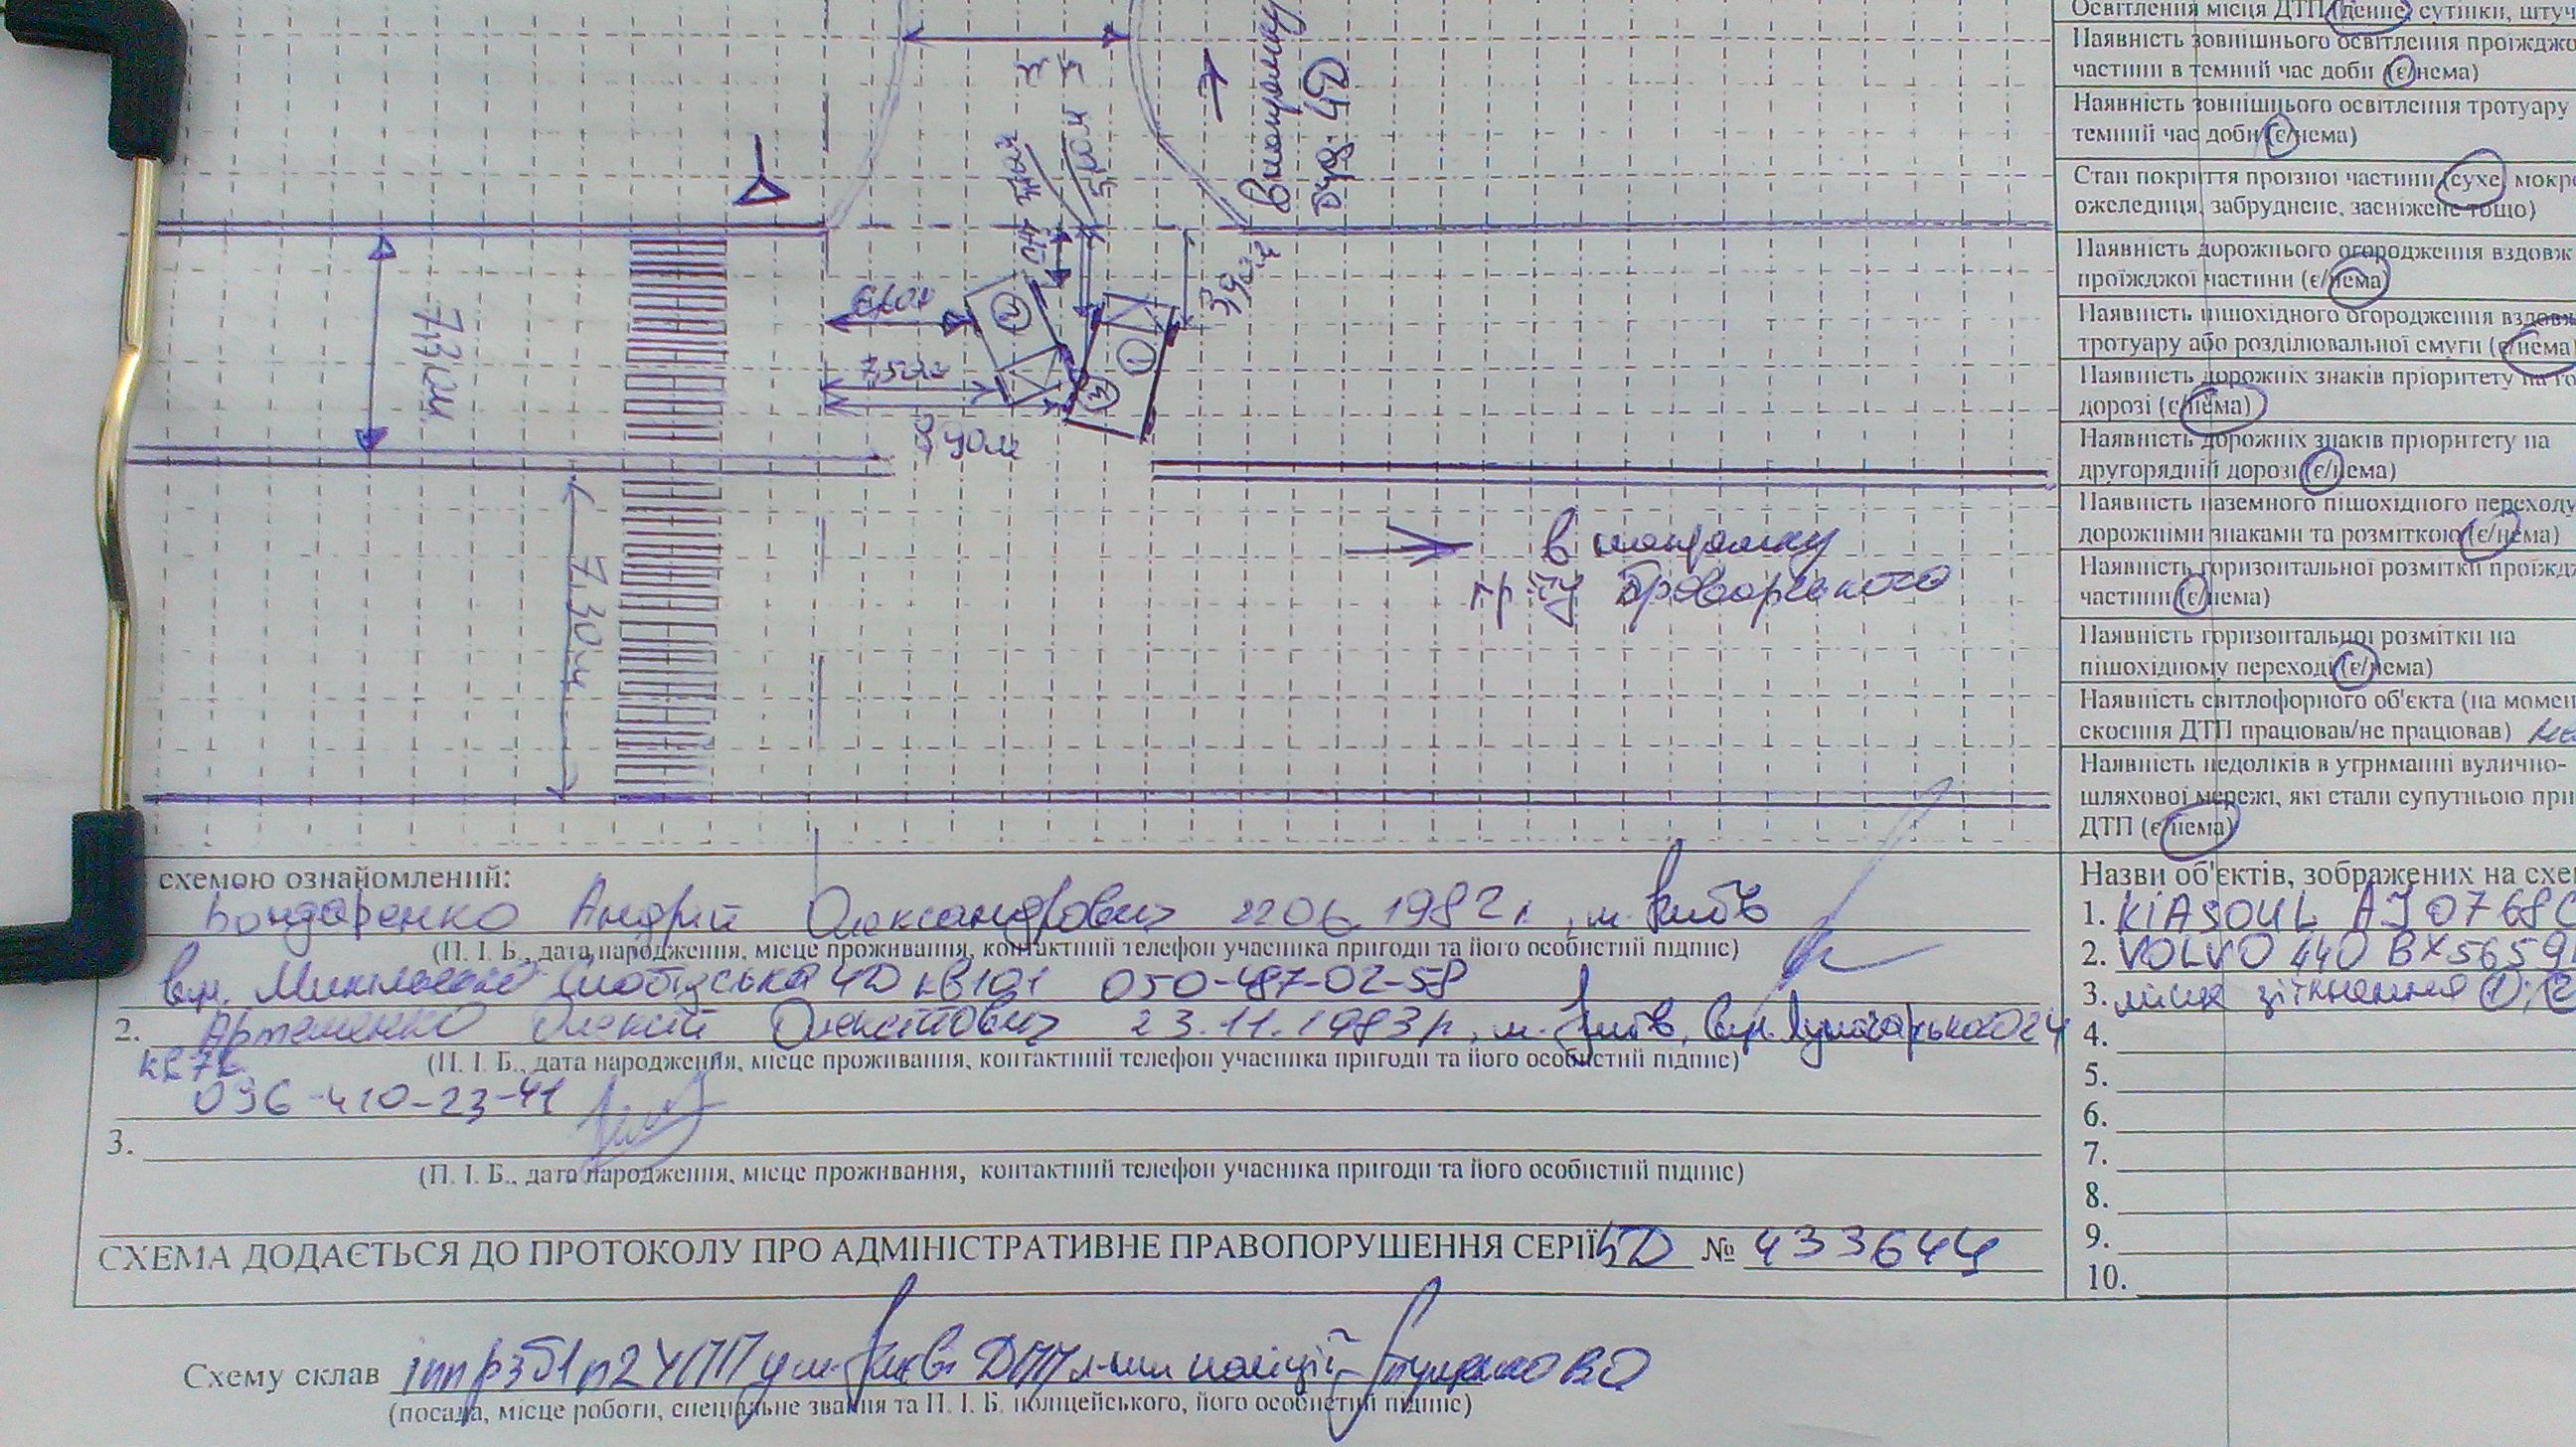 Освітлення місця ДТП (денне, сутінки, штуч
Наявність зовнішнього освітлення проїжджо
частини в темний час доби (є/нема)
Наявність зовнішнього освітлення тротуару
темний час доби (є/нема)
Стан покриття проїзної частини (сухе, мокр
ожеледиця, забруднене, засніжене тощо)
Наявність дорожнього огородження вздовж
проїжджої частини (є/нема)
Наявність пішохідного огородження вздовж
тротуару або розділювальної смуги (є/нема
Наявність дорожніх знаків пріоритету на го
дорозі (є/нема)
Наявність дорожніх знаків пріоритету на
другорядній дорозі (є/нема)
Наявність наземного пішохідного переходу
дорожніми знаками та розміткою (є/нема)
Наявність горизонтальної розмітки проїждж
частини (є/нема)
Наявність горизонтальної розмітки на
пішохідному переході (є/нема)
Наявність світлофорного об'єкта (на момен
скоєння ДТП працював/не працював)
Наявність недоліків в утриманні вулично-
шляхової мережі, які стали супутньою при
ДТП (є/нема)
в напрямку
буд. 4Д
7,30м
7,52м
8,90м
3,98м
1
2
3
7,30м
в напрямку
пр-ту Броварського
схемою ознайомлений:
Бондаренко Андрій Олександрович 22 06 1982 р., м. Київ
(П. І. Б., дата народження, місце проживання, контактний телефон учасника пригоди та його особистий підпис)
вул. Микільсько Слобідська 4Д кв101 050-487-02-58
2. Артеменко Олексій Олексійович 23.11.1983р, м. Київ, вул. Луначарського 24
(П. І. Б., дата народження, місце проживання, контактний телефон учасника пригоди та його особистий підпис)
096-410-23-41
3.
(П. І. Б., дата народження, місце проживання, контактний телефон учасника пригоди та його особистий підпис)
СХЕМА ДОДАЄТЬСЯ ДО ПРОТОКОЛУ ПРО АДМІНІСТРАТИВНЕ ПРАВОПОРУШЕННЯ СЕРІЇ № 433644
Назви об'єктів, зображених на схе
1. KIA SOUL AJ0768
2. VOLVO 440 BX5659
3. місце зіткнення 1, 2
4.
5.
6.
7.
8.
9.
10.
Схему склав
(посада, місце роботи, спеціальне звання та П. І. Б. поліцейського, його особистий підпис)